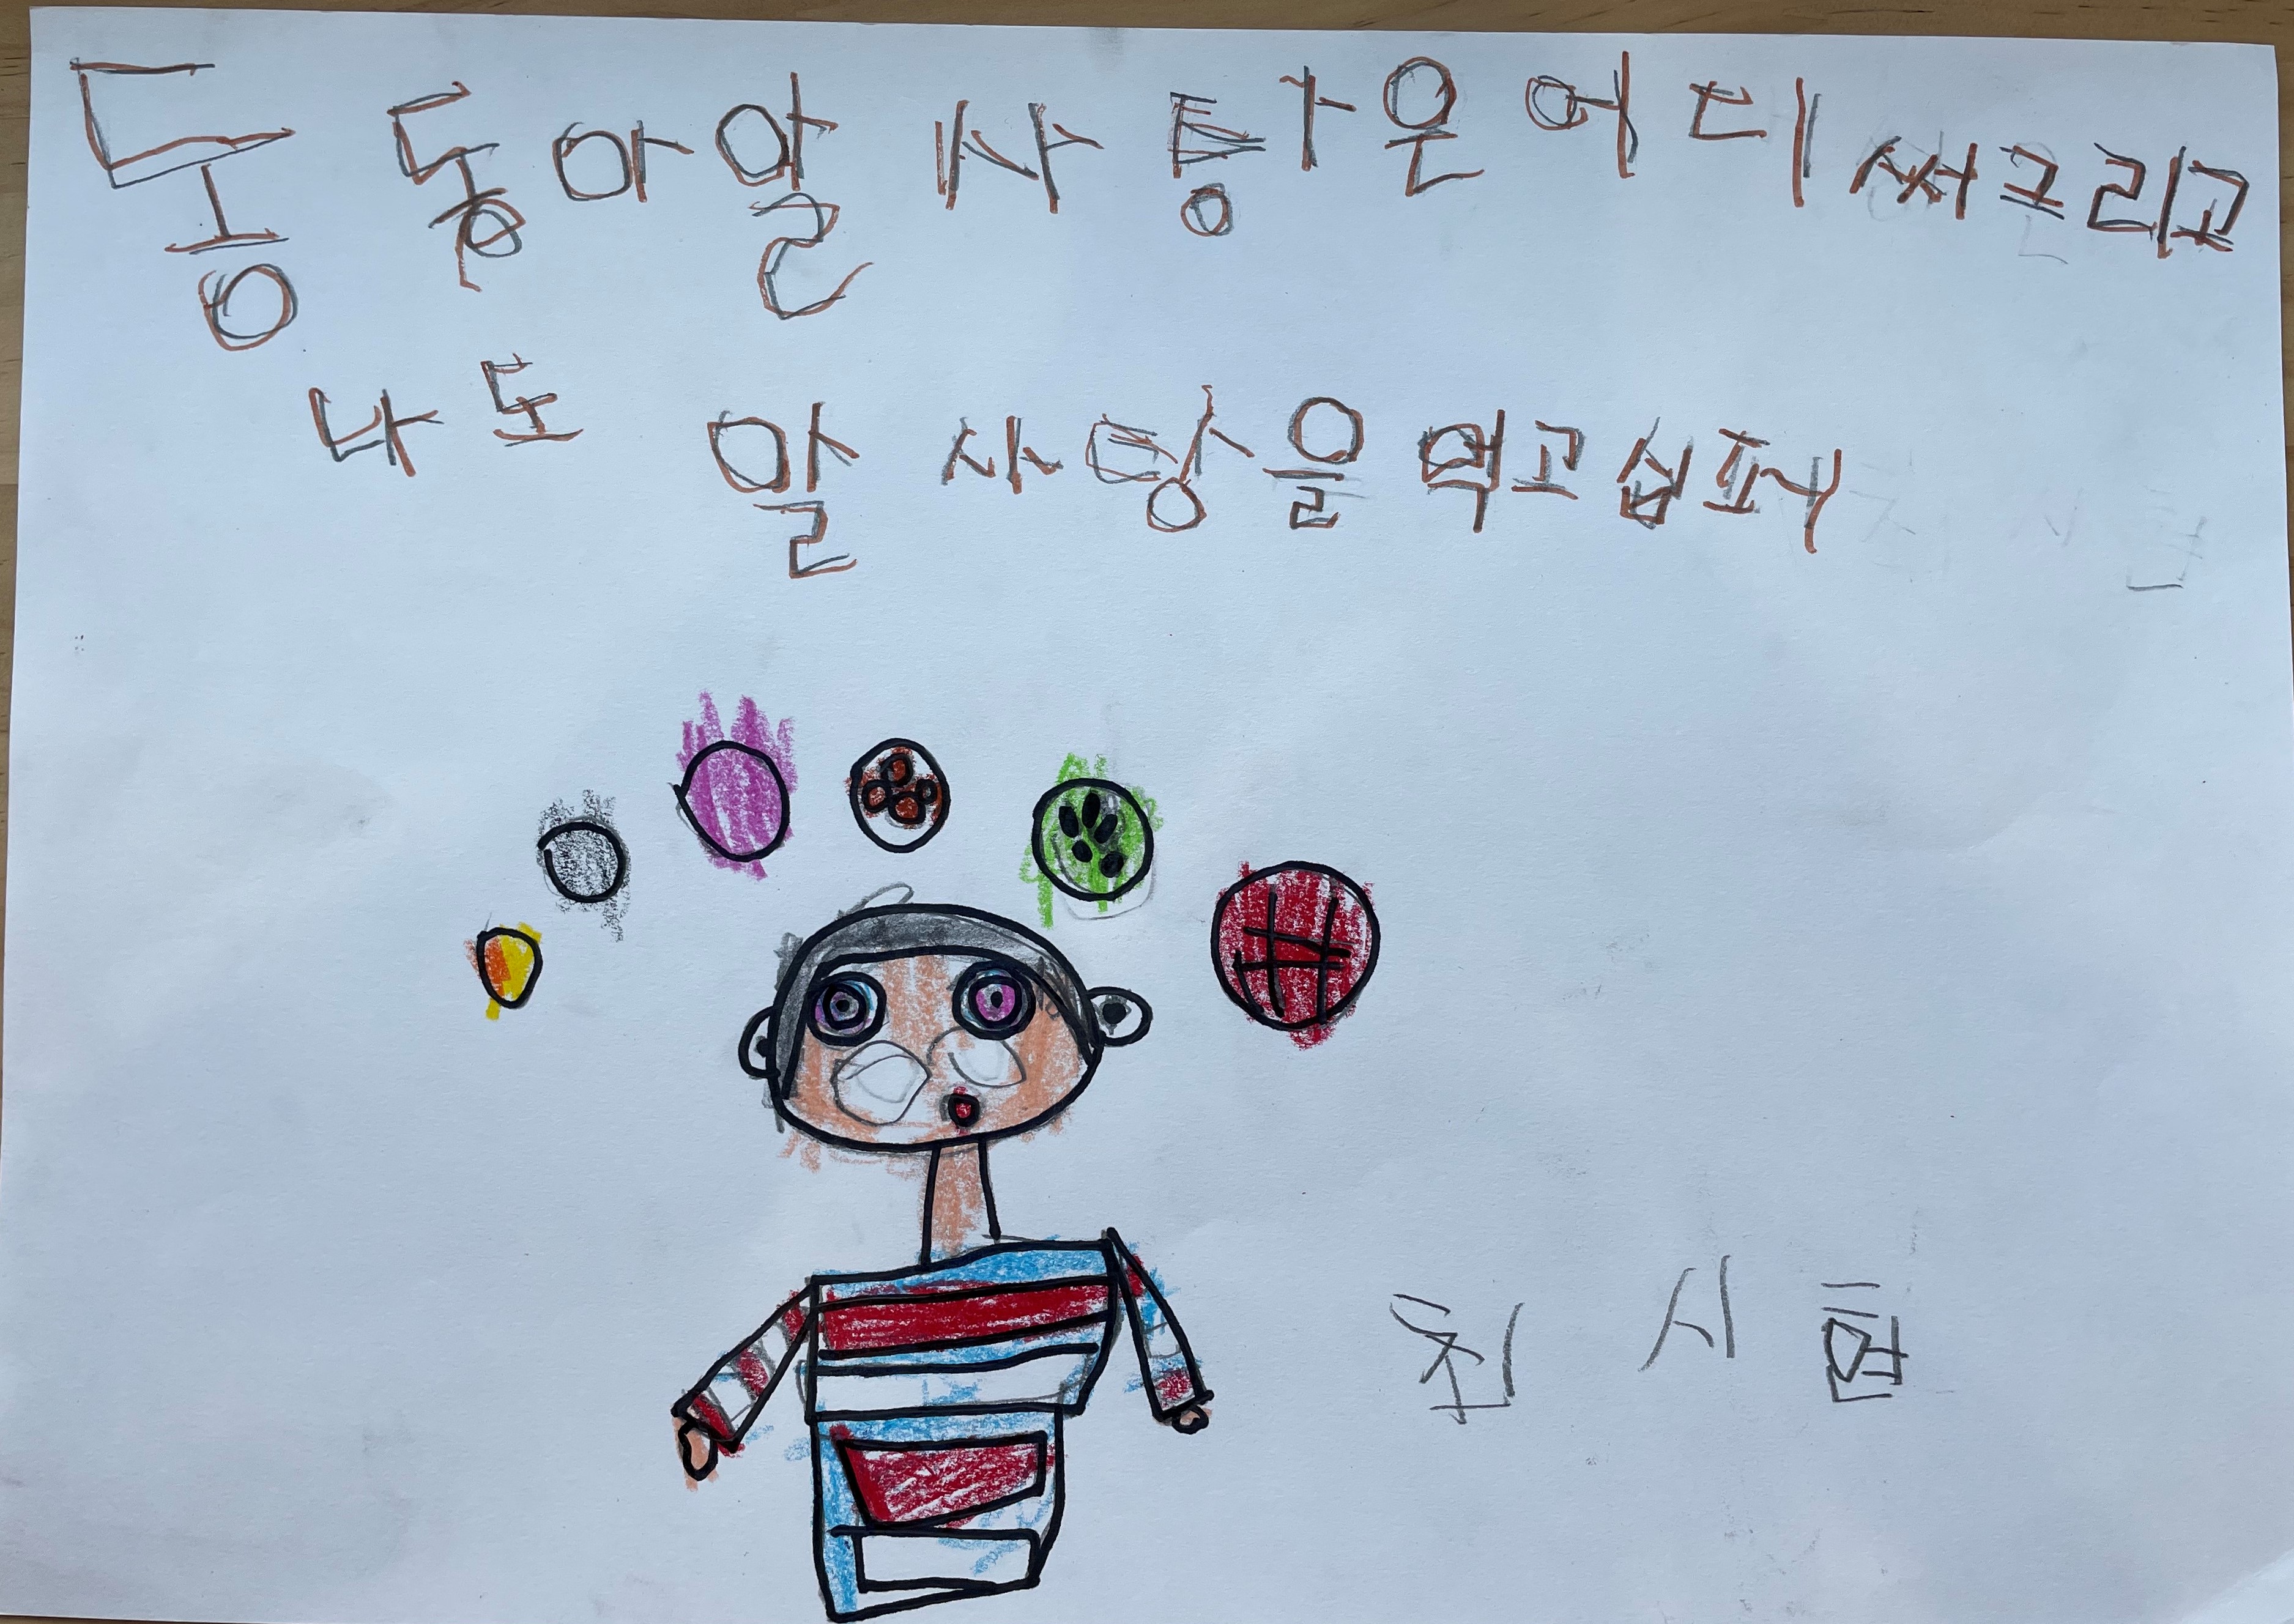 동동아 알사탕은 어디써 그리고
나도 알사탕을 먹고 십퍼
최시현